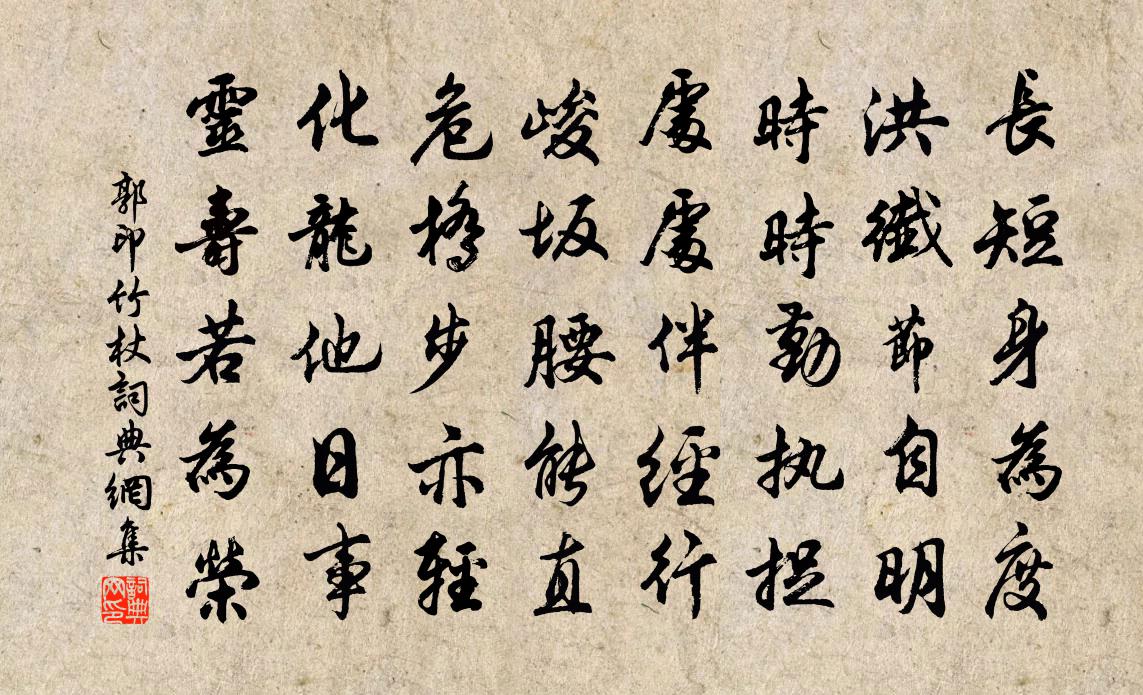 長短身為度
洪纖節自明
時時勤执捉
處處伴經行
峻坂腰能直
危橋步亦輕
化龍他日事
靈壽若為榮
郭印竹杖詞典網集
詞典网印